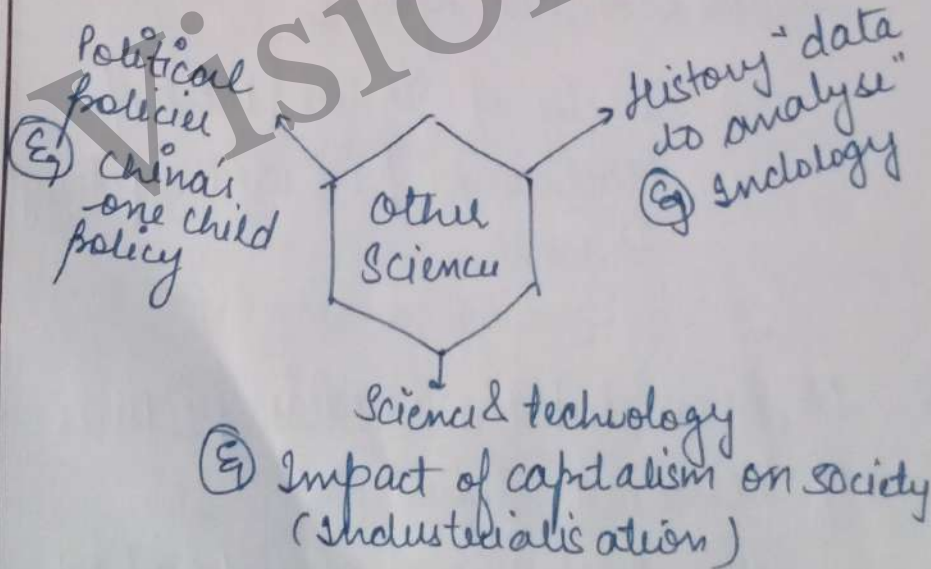 Vision
Political
policies
Eg China's
one child
policy
History "data
to analyse"
Eg Indology
Other
Sciences
Science & technology
Eg Impact of capitalism on society
(Industrialisation)